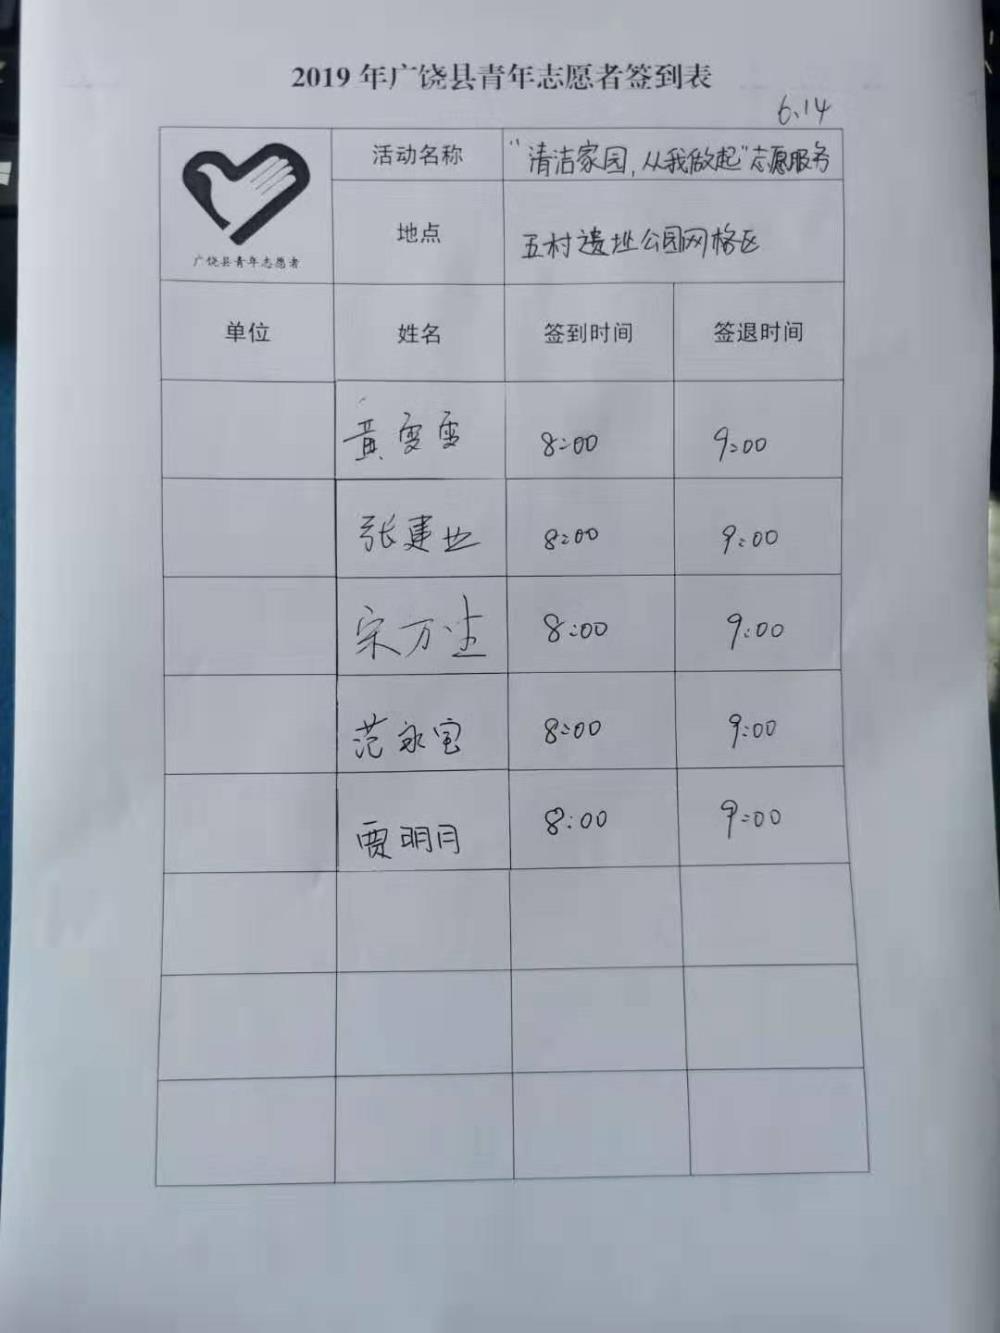 2019年广饶县青年志愿者签到表
6.14
活动名称 "清洁家园,从我做起"志愿服务
广饶县青年志愿者
地点 五村遗址公园网格区
单位 姓名 签到时间 签退时间
黄雯雯 8:00 9:00
张建业 8:00 9:00
宋万 8:00 9:00
范永宝 8:00 9:00
贾明月 8:00 9:00